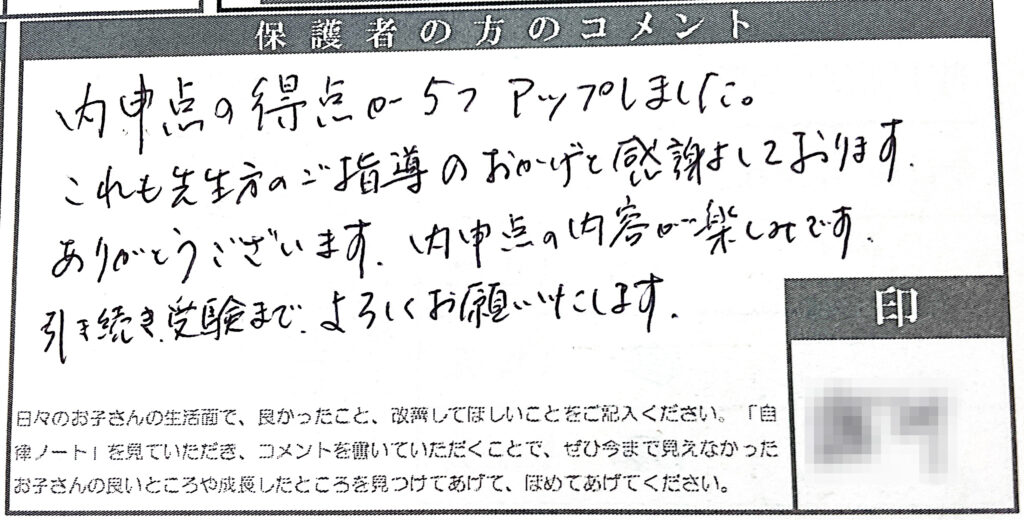 保護者の方のコメント
内申点の得点が5つアップしました。
これも先生方のご指導のおかげと感謝しております.
ありがとうございます. 内申点の内容が楽しみです.
引き続き、受験まで、よろしくお願いいたします.
印
日々のお子さんの生活面で、良かったこと、改善してほしいことをご記入ください。「自
律ノート」を見ていただき、コメントを書いていただくことで、ぜひ今まで見えなかった
お子さんの良いところや成長したところを見つけてあげて、ほめてあげてください。